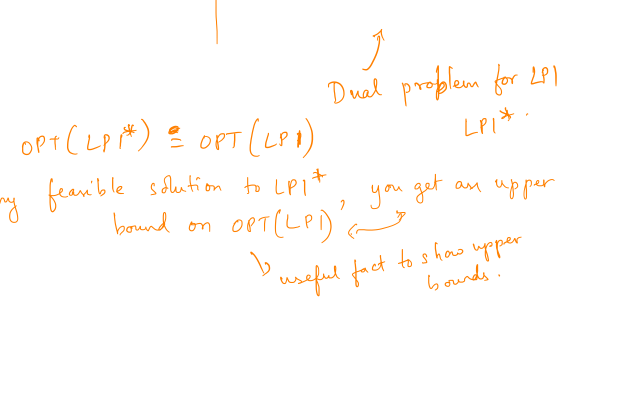 Dual problem for LP1
LP1*.
OPT(LP1*) = OPT(LP1)
ny feasible solution to LP1*, you get an upper
bound on OPT(LP1)
useful fact to show upper
bounds.